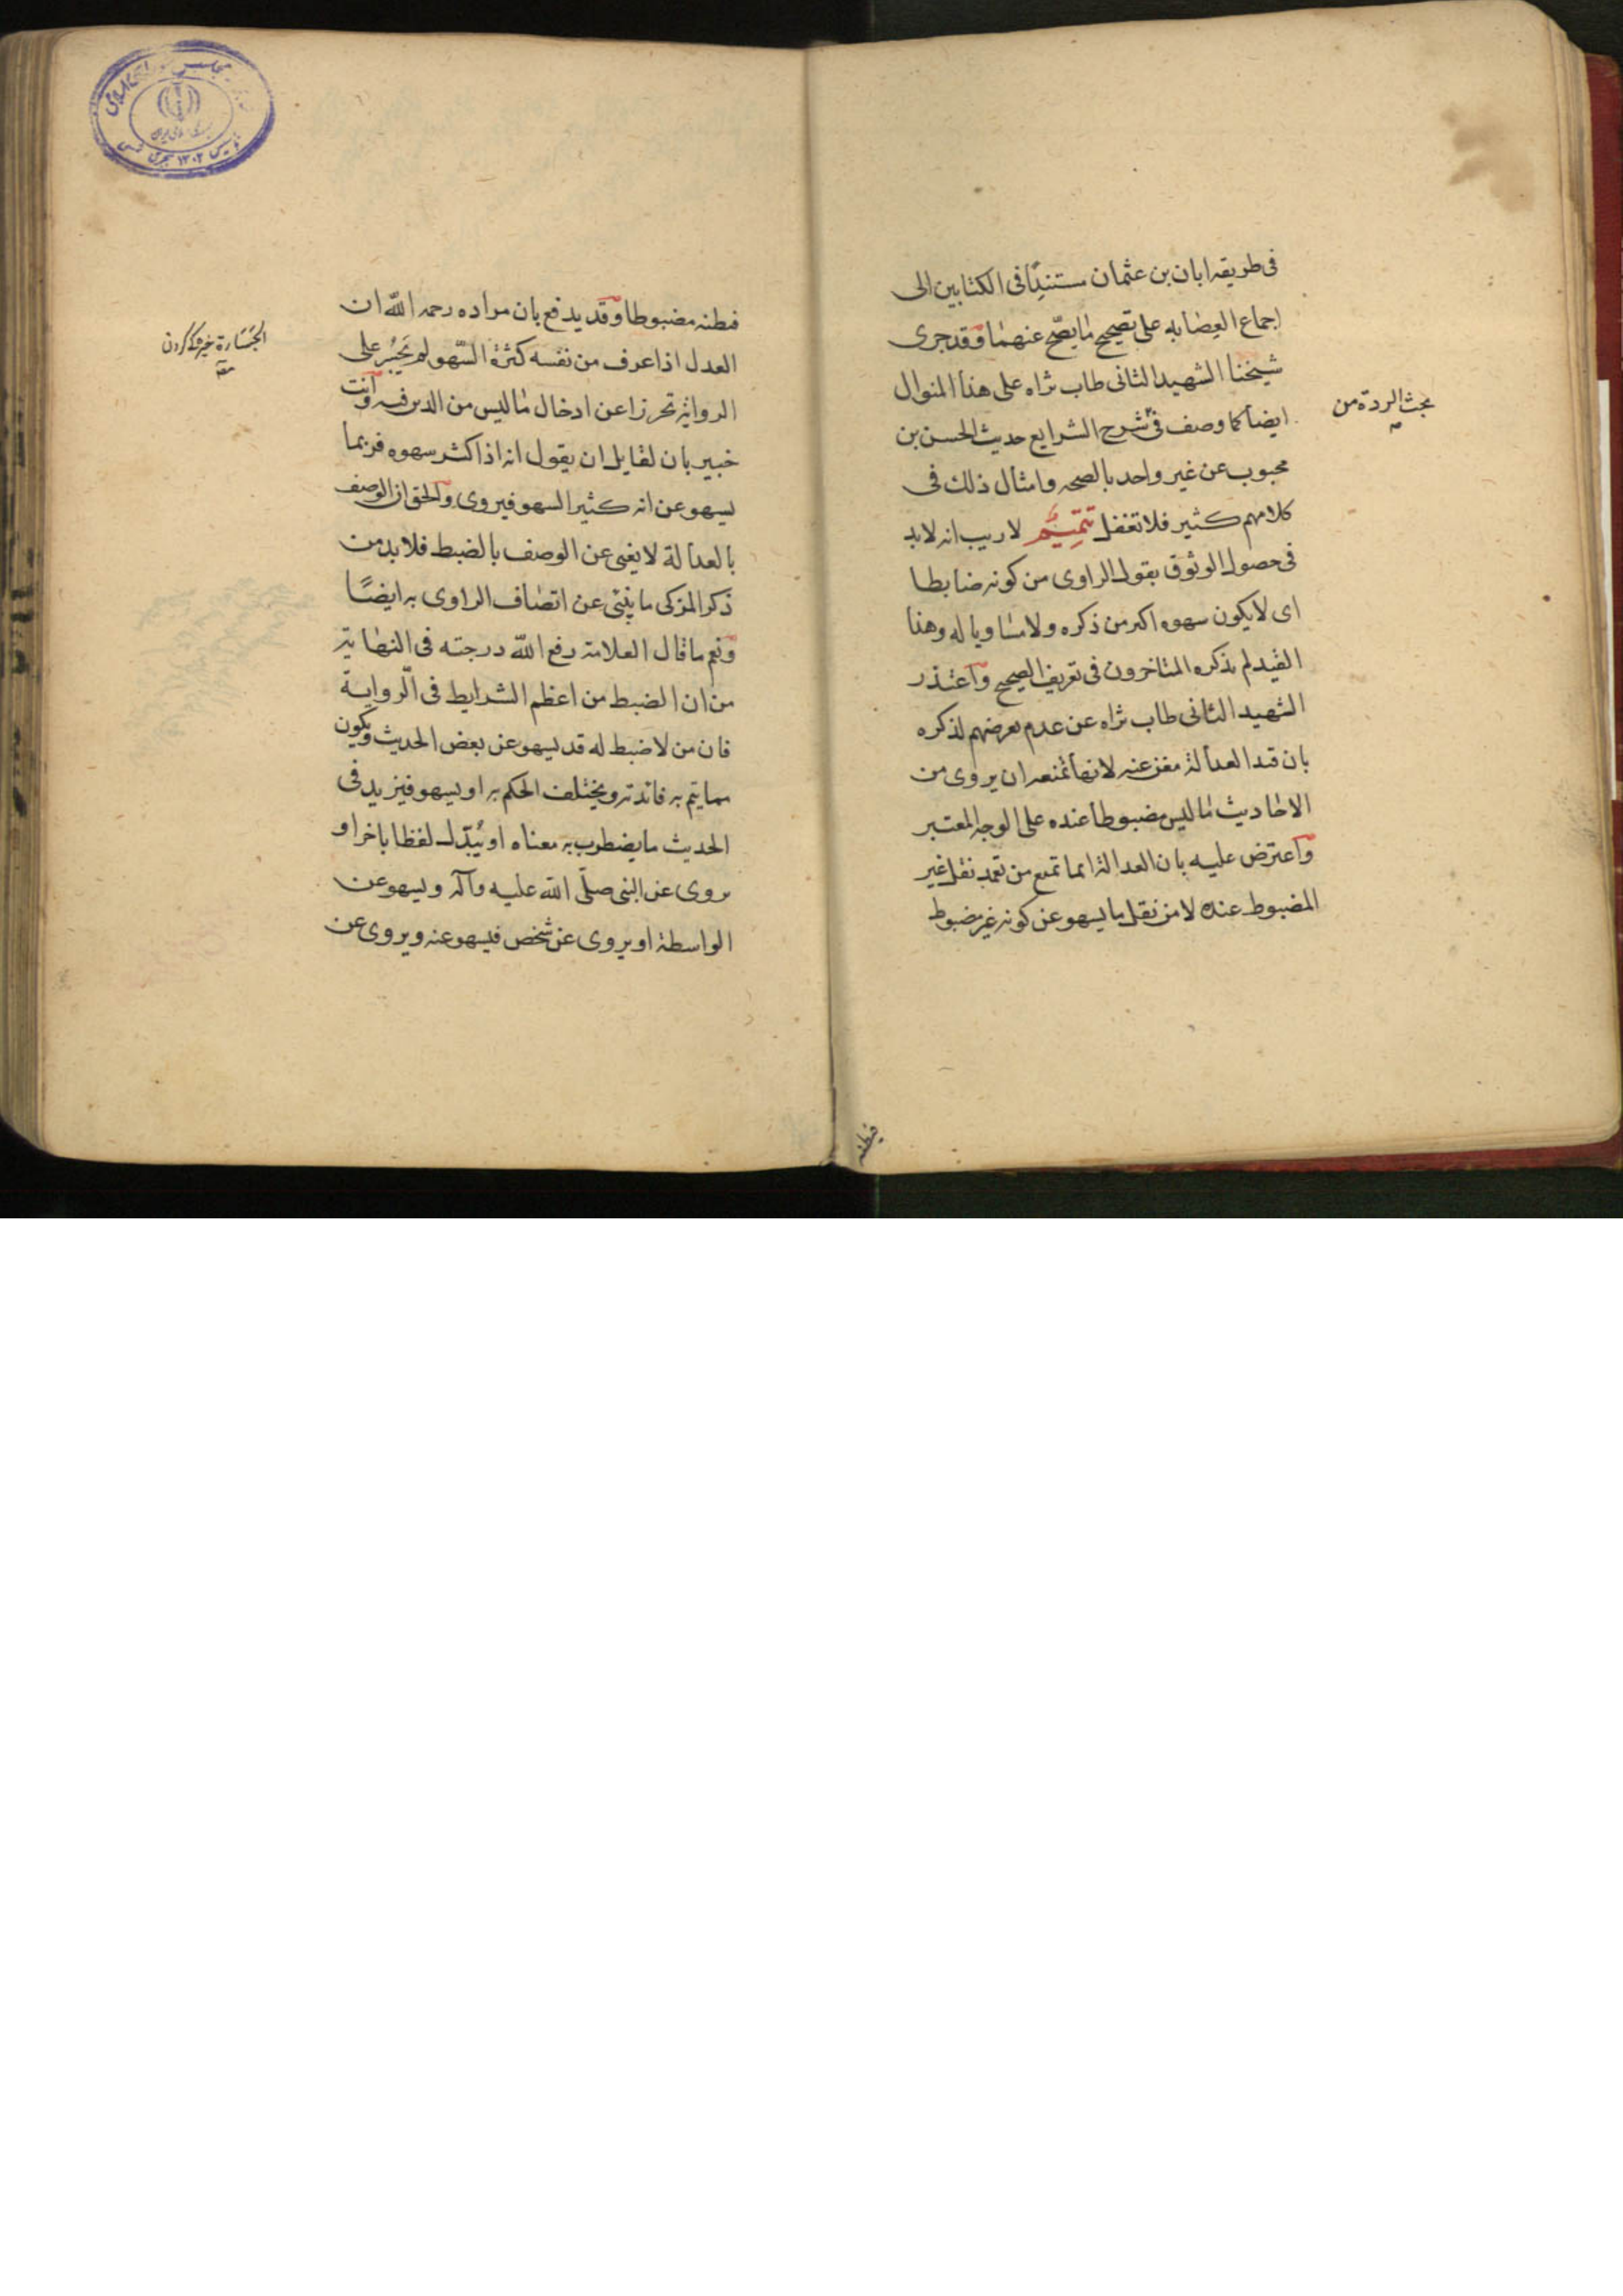 فى طريقه ابان بن عثمان مستندًا فى الكتابين الى
اجماع العصابه على تصحيح ما يصّح عنهما وقد جرى
شيخنا الشهيد الثانى طاب ثراه على هذا المنوال
ايضا كما وصف فى شرح الشرايع حديث الحسن بن
محبوب عن غير واحد بالصحه وامثال ذلك فى
كلامهم كثير فلا تغفل تتميم لا ريب انه لا بد
فى حصول الوثوق بقول الراوى من كونه ضابطا
اى لا يكون سهوه اكثر من ذكره ولا مساويا له وهذا
القيد لم يذكره المتاخرون فى تعريف الصحيح واعتذر
الشهيد الثانى طاب ثراه عن عدم تعرضهم لذكره
بان قيد العدالة مغن عنه لانها تمنعه ان يروى من
الاحاديث ما ليس مضبوطا عنده على الوجه المعتبر
واعترض عليه بان العدالة انما تمنع من تعمد نقل غير
المضبوط عنده لا من نقل ما يسهو عن كونه غير مضبوط
بحث الردة من
فيظنه
فيظنه مضبوطا وقد يدفع بان مراده رحمه الله ان
العدل اذا عرف من نفسه كثرة السّهو لم يَجْسُر على
الرواية تحرزا عن ادخال ما ليس من الدين فيه وانت
خبير بان لقايل ان يقول انه اذا كثر سهوه فربما
يسهو عن انه كثير السهو فيروى والحق ان الوصف
بالعدالة لا يغنى عن الوصف بالضبط فلا بد من
ذكر المزكى ما ينبئ عن اتصاف الراوى به ايضًا
ونعم ما قال العلامة رفع الله درجته فى النهاية
من ان الضبط من اعظم الشرايط فى الرواية
فان من لا ضبط له قد يسهو عن بعض الحديث ويكون
مما يتم به فائدته ويختلف الحكم به او يسهو فيزيد فى
الحديث ما يضطرب به معناه او يُبَدّل لفظا باخر او
يروى عن النبى صلّى الله عليه وآله ويسهو عن
الواسطة او يروى عن شخص فيسهو عنه ويروى عن
الجَسَارة كردن